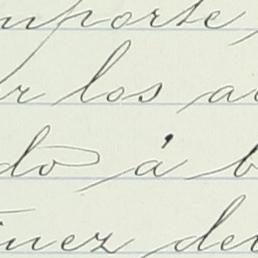 mporte,
r los a
do á b
inez de